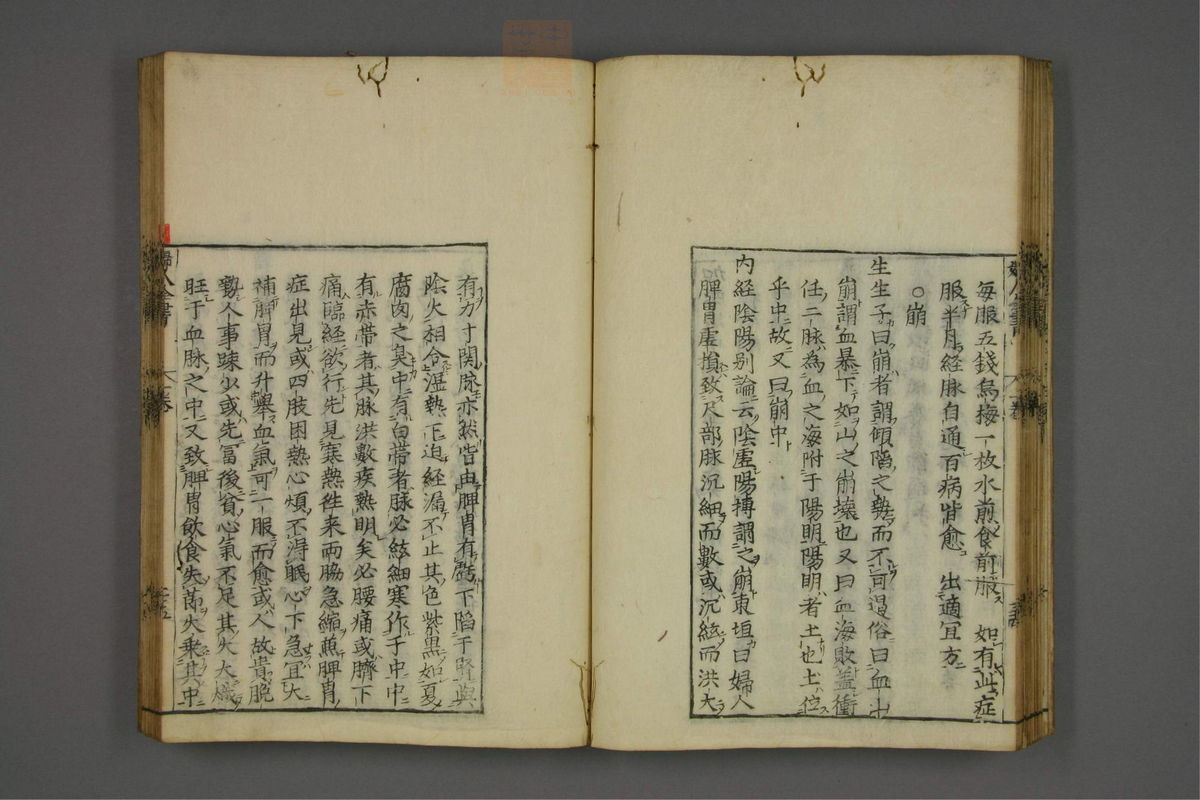 每服五錢烏梅一枚水煎食前服　如有此症
服半月経脉自通百病皆愈　出適冝方
○崩
生生子曰崩者謂傾隤之勢而不可遏俗曰血山
崩謂血暴下如山之崩壊也又曰血海敗蓋衝
任二脉為血之海附于陽明陽明者土也土位
乎中故又曰崩中
内経陰陽别論云陰虚陽搏謂之崩東垣曰婦人
脾胃虚損致尺部脉沉細而數或沉絃而洪大
有力寸関脉亦然皆由脾胃有虧下陷于腎與
陰火相合湿熱下迫経漏不止其色紫黒如夏
腐肉之臭中有白带者脉必絃細寒作于中中
有赤带者其脉洪數疾熱明矣必腰痛或臍下
痛臨経欲行先見寒熱徃来両脇急縮蕉脾胃
症出見或四肢困熱心煩不淂眠心下急冝大
補脾胃而升舉血氣可一服而愈或人故貴脱
勢人事踈少或先冨後貧心氣不足其火大熾
旺于血脉之中又致脾胃飲食失莭火乗其中
婦人全書